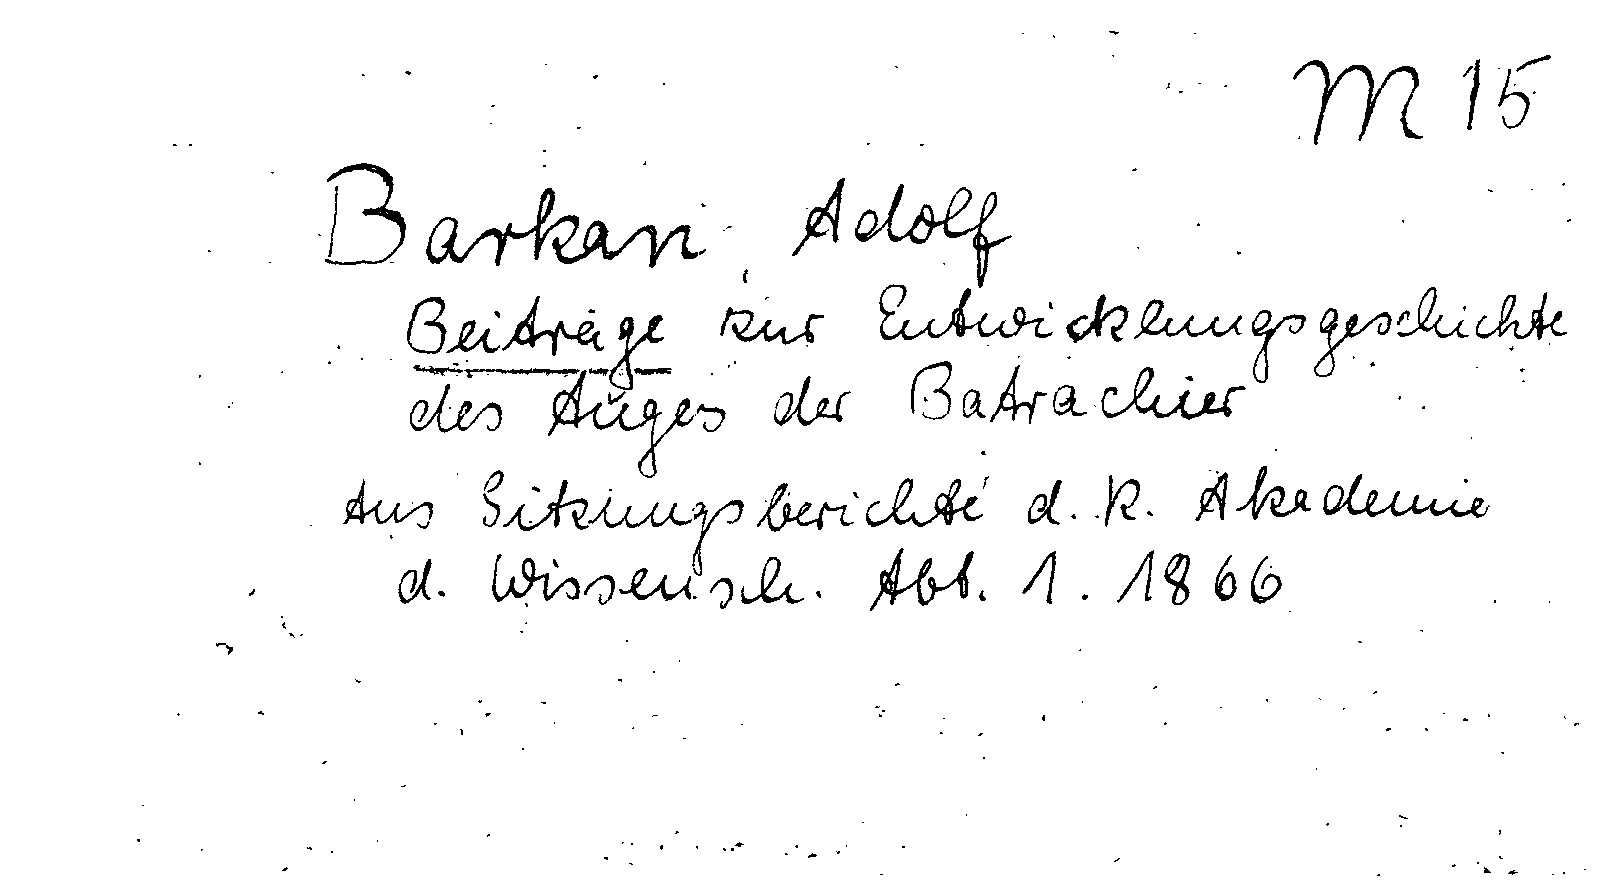 M 15
Barkan, Adolf
Beiträge zur Entwicklungsgeschichte
des Auges der Batrachier
Aus Sitzungsberichte d. K. Akademie
d. Wissensch. Abt. 1. 1866